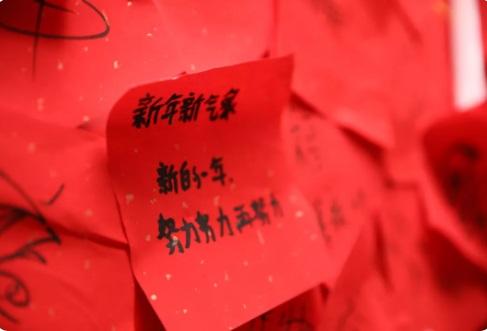 新年新气象
新的一年,
努力努力再努力